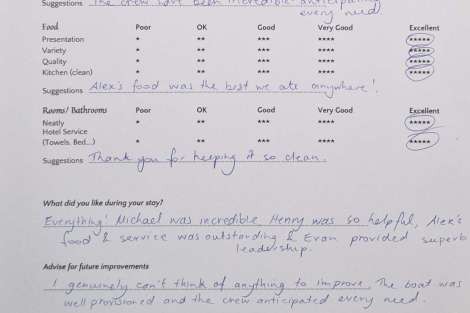 Suggestions The crew have been incredible anticipating
every need
Food Poor OK Good Very Good Excellent
Presentation * ** *** **** *****
Variety * ** *** **** *****
Quality * ** *** **** *****
Kitchen (clean) * ** *** **** *****
Suggestions Alex's food was the best we ate anywhere!
Rooms/ Bathrooms Poor OK Good Very Good Excellent
Neatly * ** *** **** *****
Hotel Service
(Towels. Bed...) * ** *** **** *****
Suggestions Thank you for keeping it so clean.
What did you like during your stay?
Everything! Michael was incredible, Henny was so helpful, Alex's
food & service was outstanding & Evan provided superb
leadership.
Advise for future improvements
I genuinely can't think of anything to improve. The boat was
well provisioned and the crew anticipated every need.